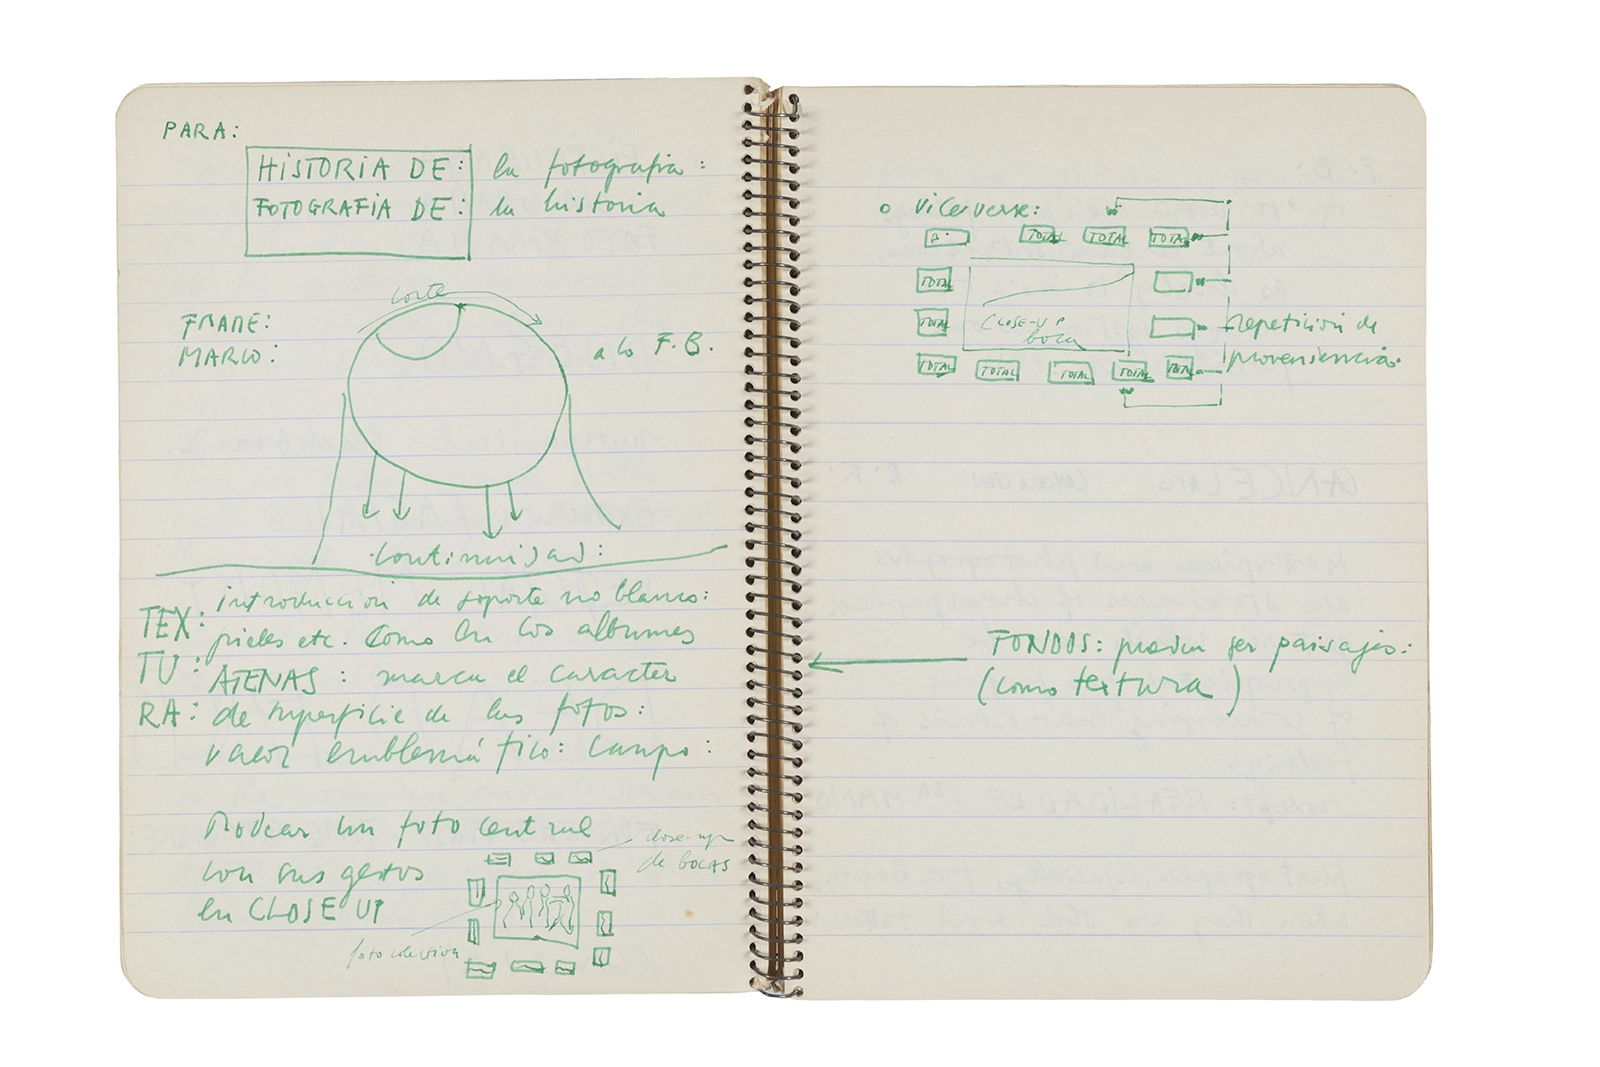 PARA:
HISTORIA DE: la fotografia:
FOTOGRAFIA DE: la historia
corte
FRAME:
MARCO:
a lo F.B.
continuidad:
TEX: introduccion de soporte no blanco:
pieles etc. Como en los albumes
TU: ATENAS: marca el caracter
RA: de superficie de las fotos:
valor emblemático: Campo:
Rodear un foto central
con sus gestos
en CLOSE UP
close-up
de bocas
foto colectiva
o viceverse:
TOTAL TOTAL TOTAL
TOTAL
TOTAL
CLOSE-UP
boca
TOTAL TOTAL TOTAL TOTAL TOTAL
repetición de
proveniencia
FONDOS: podrían ser paisajes:
(como textura)